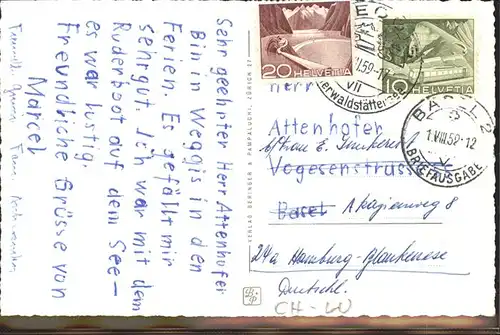 Sehr geehrter Herr Attenhofer
Bin in Weggis in den
Ferien. Es gefällt mir
sehr gut. Ich war mit dem
Ruderboot auf dem See –
es war lustig.
Freundliche Grüsse von
Marcel
VERLAG BERINGER & PAMPALUCHI, ZÜRICH 37
20 HELVETIA
10 HELVETIA
VII
erwaldstätters
BASEL 2
1.VIII.59-12
BRIEFAUSGABE
Herr
Attenhofer
Vogesenstrass
Basel Akazienweg 8
24a Hamburg-Blankenese
Deutschl.
CH-LU